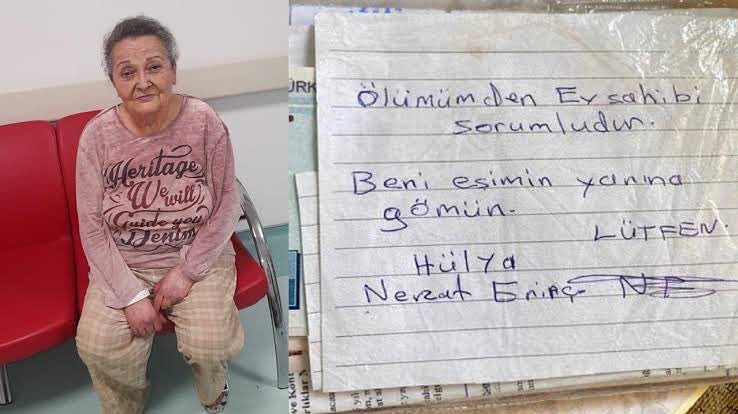 Heritage
We will
Guide you
Denim
ÜRK
Ölümümden Ev sahibi
sorumludur.
Beni eşimin yanına
gömün.
LÜTFEN.
Hülya
Nevzat
ve Kont